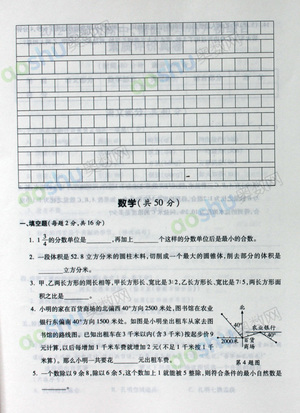 数学(共 50 分)
一、填空题(每题 2 分,共 16 分)
1. 1¾的分数单位是______,再加上______个这样的分数单位后是最小的合数。
2. 一段体积是 52.8 立方分米的圆柱木料,切削成一个最大的圆锥体,削去部分的体积是
______立方分米。
3. 甲、乙两长方形的周长相等,甲长方形长、宽比是 3:2,乙长方形长、宽比是 7:5,两长方形面
积之比是______。
4. 小明的家在百货商场的北偏西 40°方向 2500 米处,图书馆在农业
银行东偏南 40°方向 1500 米处。如图是小明坐出租车从家去图
书馆的路线图。已知出租车在 3 千米以内(含 3 千米)按起步价 9
元计算,以后每增加 1 千米车费就增加 2 元(不足 1 千米按 1 千
米算)。那么小明一共要花______元出租车费。
北
40°
农业银行
2000米
百货
商场
第 4 题图
5. 一个数除以 9 余 8,除以 6 余 5,这个数加上 1 就能被 5 整除,则符合条件的最小自然数是